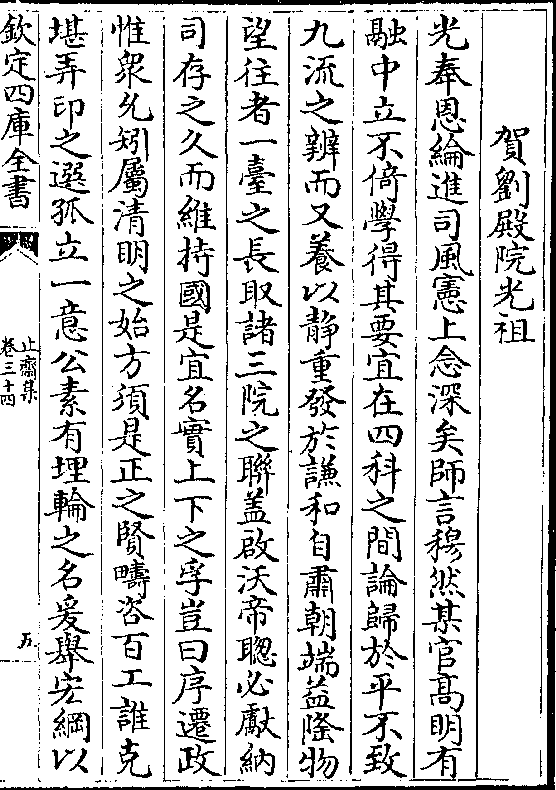 賀劉殿院光祖
光奉恩綸進司風憲上念深矣師言穆然某官髙明有
融中立不倚學得其要宜在四科之間論歸於平不致
九流之辨而又養以静重發於謙和自肅朝端益隆物
望往者一臺之長取諸三院之聯盖啟沃帝聰必獻納
司存之久而維持國是宜名實上下之孚豈曰序遷政
惟衆允矧屬清明之始方須是正之賢疇咨百工誰克
堪弄印之選孤立一意公素有埋輪之名爰舉宏綱以
欽定四庫全書
止齋集
卷三十四
五